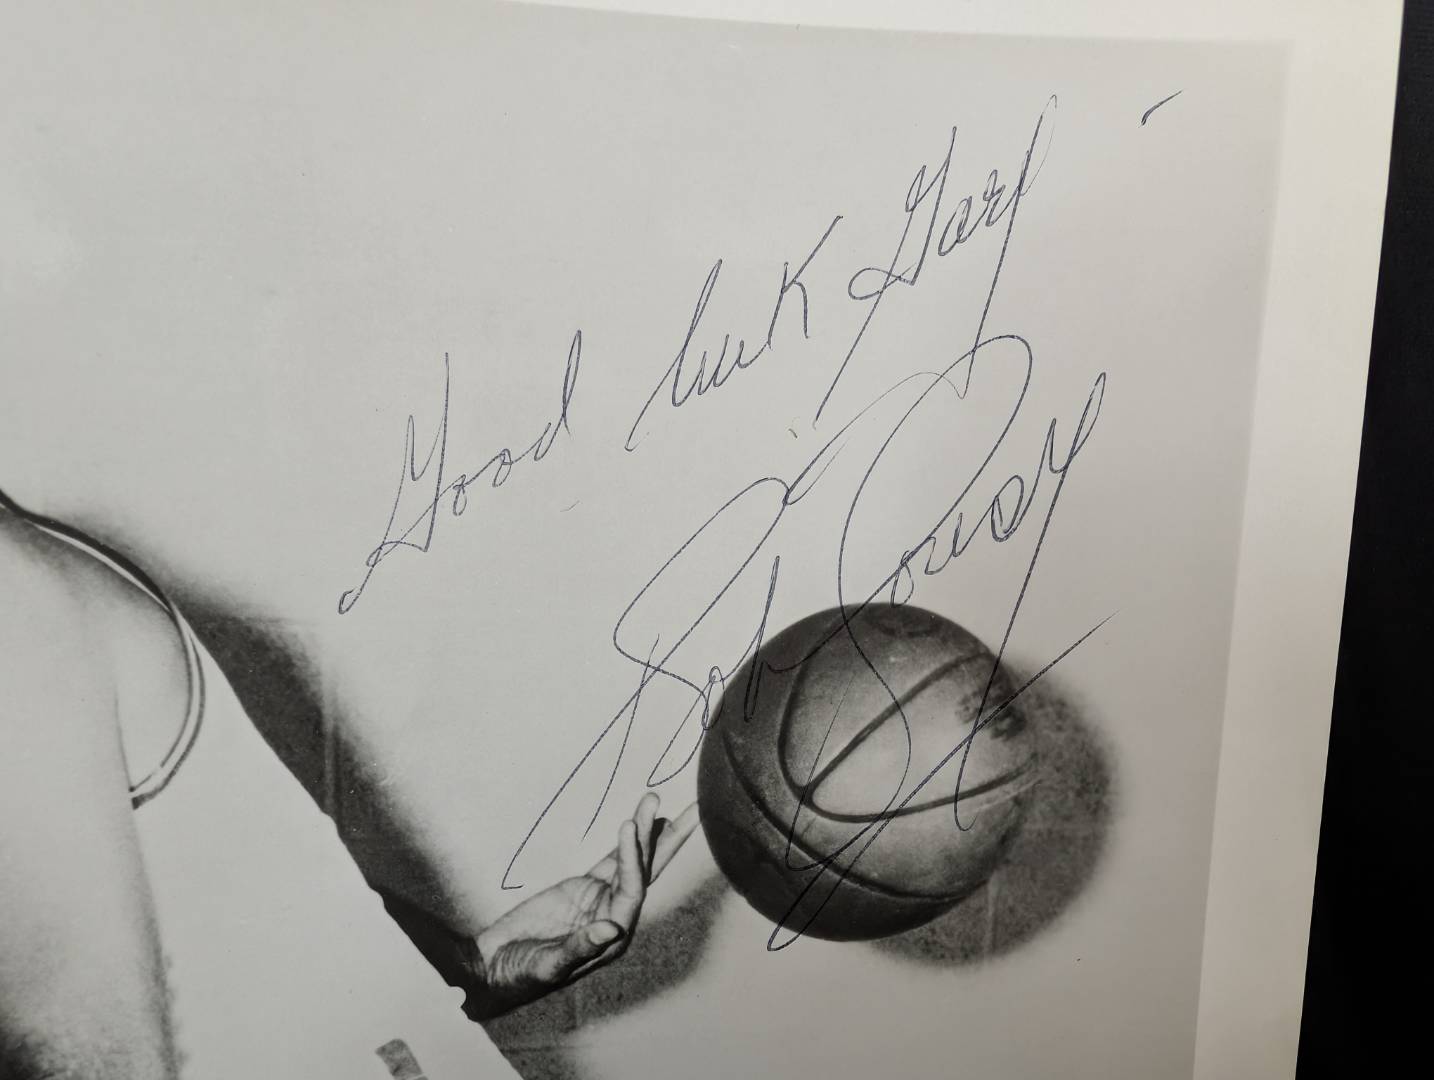 Good luck Gary -
Bob Cousy